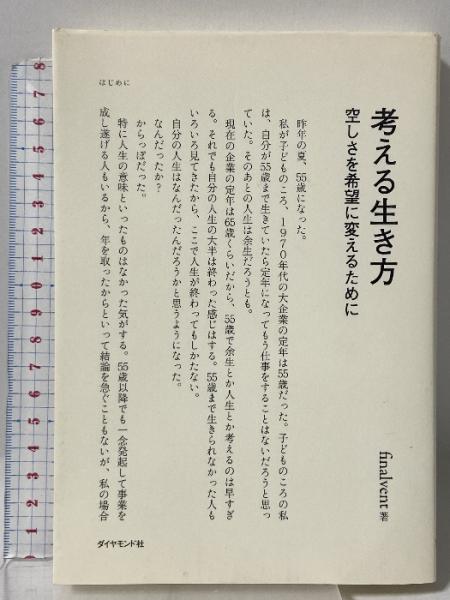 考える生き方
空しさを希望に変えるために
finalvent 著
はじめに
昨年の夏、55歳になった。
私が子どものころ、1970年代の大企業の定年は55歳だった。子どものころの私
は、自分が55歳まで生きていたら定年になってもう仕事をすることはないだろうと思っ
ていた。そのあとの人生は余生だろうとも。
現在の企業の定年は65歳くらいだから、55歳で余生とか人生とか考えるのは早すぎ
る。それでも自分の人生の大半は終わった感じはする。55歳まで生きられなかった人も
いろいろ見てきたから、ここで人生が終わってもしかたない。
自分の人生はなんだったんだろうかと思うようになった。
なんだったか？
からっぽだった。
特に人生の意味といったものはなかった気がする。55歳以降でも一念発起して事業を
成し遂げる人もいるから、年を取ったからといって結論を急ぐこともないが、私の場合
ダイヤモンド社
8
7
6
5
4
3
2
1
0
9
8
7
6
5
4
3
2
1